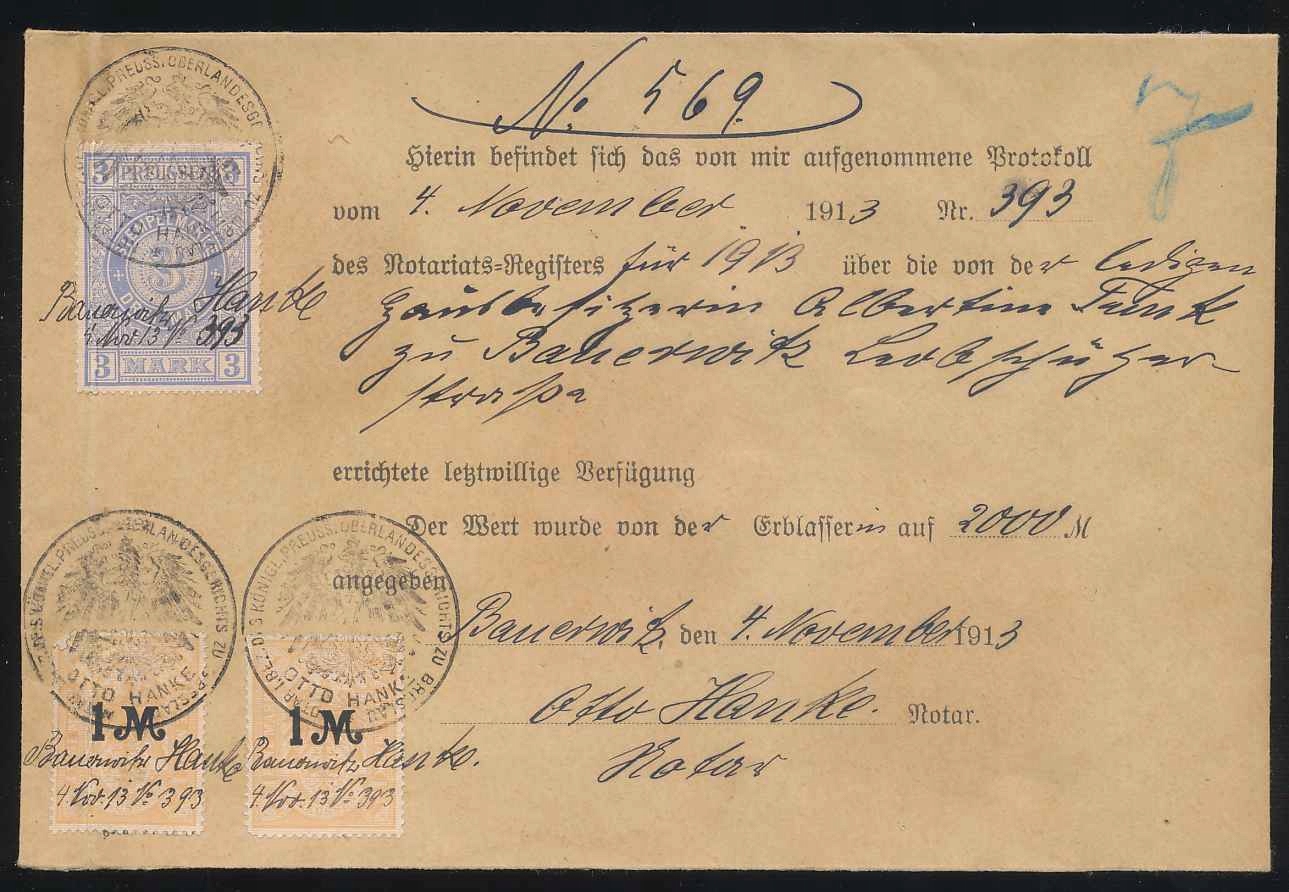 No. 569.
Hierin befindet sich das von mir aufgenommene Protokoll
vom 4. November 1913 Nr. 393
des Notariats=Registers für 1913 über die von der ledigen
Hausbesitzerin Albertine Funk
zu Bauerwitz Leobschützer
straße
errichtete letztwillige Verfügung
Der Wert wurde von der Erblasserin auf 2000 M
angegeben
Bauerwitz, den 4. November 1913
Otto Hanke. Notar.
Notar
3 PREUSSEN 3
Bauerwitz Hanke
4 Nov 13 No 393
3 MARK 3
KÖNIGL. PREUSS. OBERLANDESGERICHTS ZU
OTTO HANKE
1 M
Bauerwitz Hanke
4 Nov. 13 No 393
DES KÖNIGL. PREUSS. OBERLANDESGERICHTS ZU BRESLAU
OTTO HANKE
1 M
Bauerwitz Hanke.
4 Nov. 13 No 393